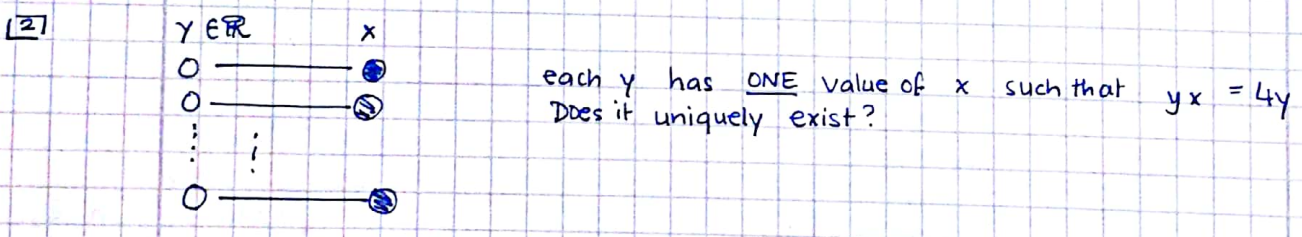 [2] y ∈ ℝ x
each y has ONE value of x such that yx = 4y
Does it uniquely exist?